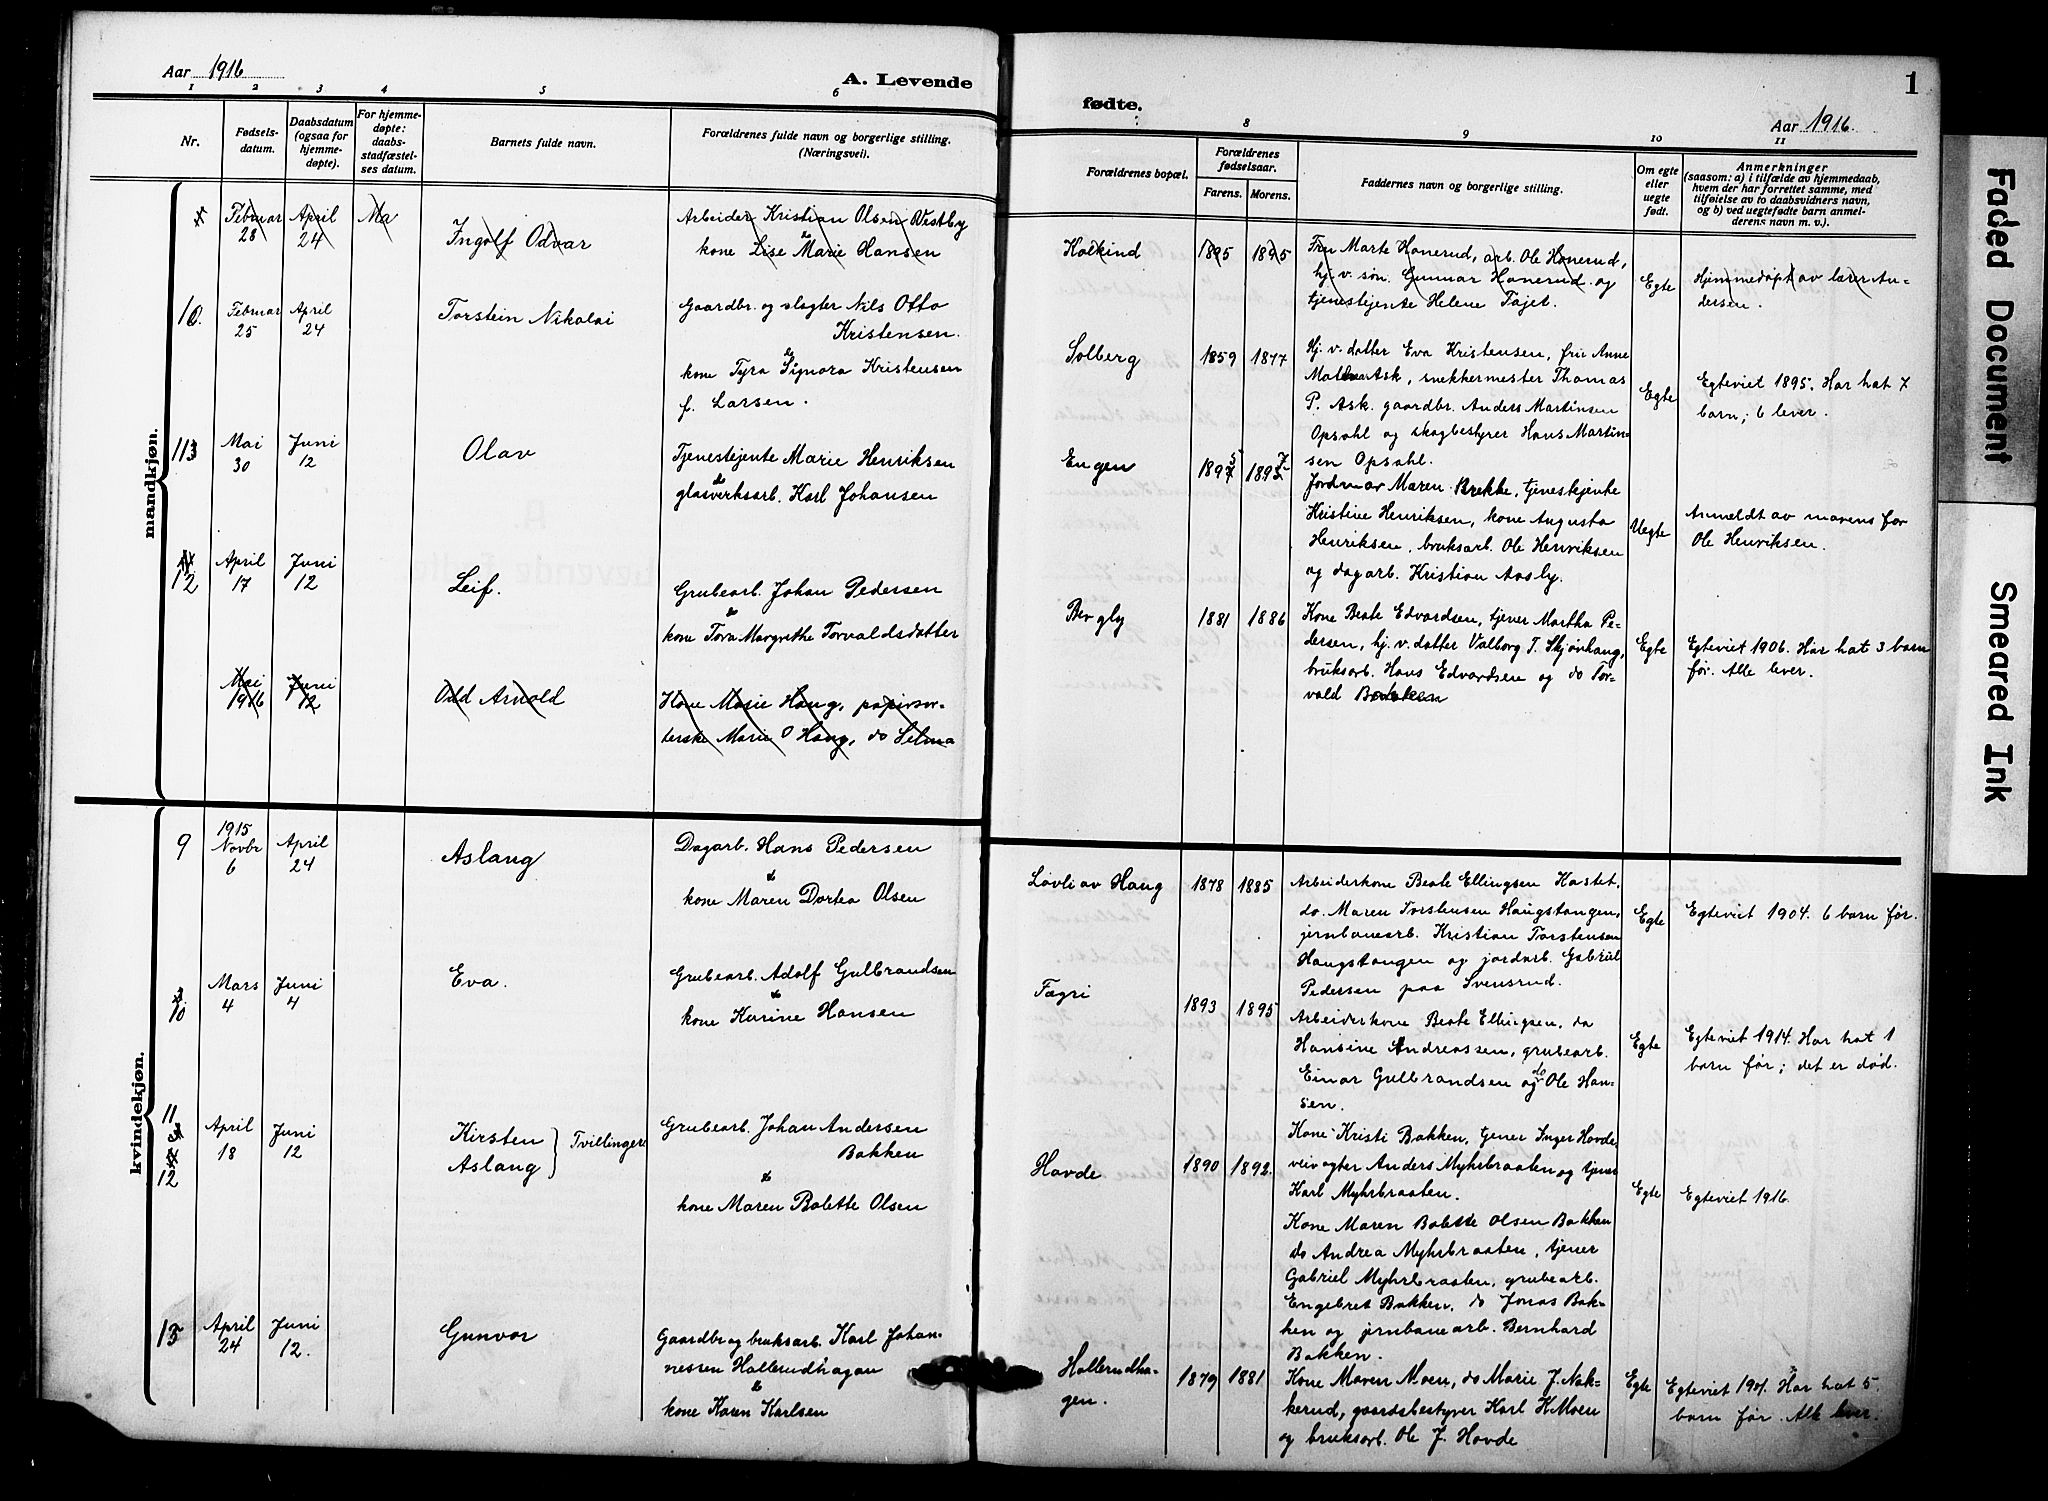 Aar 1916
A. Levende
1 2 3 4 5 6
Nr.
Fødsels-
datum.
Daabsdatum
(ogsaa for
hjemme-
døpte).
For hjemme-
døpte:
daabs-
stadfæstel-
ses datum.
Barnets fulde navn.
Forældrenes fulde navn og borgerlige stilling.
(Næringsvei).
mandkjøn.
Februar
28
April
24
Ma
Ingolf Odvar
Arbeider Kristian Olsen Vestby
&
kone Lise Marie Hansen
10.
Februar
25
April
24
Torstein Nikolai
Gaardbr. og slagter Nils Otto
Kristensen.
&
kone Tyra Signora Kristensen
f. Larsen.
113
Mai
30
Juni
12
Olav
Tjenestejente Marie Henriksen
&
glasverksarb. Karl Johansen
12
April
17
Juni
12
Leif.
Grubearb. Johan Pedersen
&
kone Tora Margrethe Torvaldsdatter
Mai
1916
Juni
12
Odd Arnold
Kone Marie Haug, papirsor-
terske Marie O Haug, do Selma
kvindekjøn.
9
1915
Novbr
6
April
24
Aslaug
Dagarb. Hans Pedersen
&
kone Maren Dortea Olsen
10
Mars
4
Juni
4
Eva.
Grubearb. Adolf Gulbrandsen
&
kone Karine Hansen
11
12
April
18
Juni
12
Kirsten
Aslaug
Tvillinger
Grubearb. Johan Andersen
Bakken
&
kone Maren Bolette Olsen
13
April
24
Juni
12.
Gunvor
Gaardbr og bruksarb. Karl Johan-
nessen Hallerudhagen
&
kone Karen Karlsen
fødte.
1
Aar 1916.
8 9 10 11
Forældrenes bopæl.
Forældrenes
fødselsaar.
Farens. Morens.
Faddernes navn og borgerlige stilling.
Om egte
eller
uegte
født.
Anmerkninger
(saasom: a) i tilfælde av hjemmedaab,
hvem der har forrettet samme, med
tilføielse av to daabsvidners navn,
og b) ved uegtefødte barn anmel-
derens navn m. v.).
Kolkind
1895 1895
Fru Marte Honerud, arb. Ole Honerud,
hj. v. søn. Gunnar Honerud og
tjenestejente Helene Tajet.
Egte
Hjemmedøpt av lærer An-
dersen.
Solberg
1859 1877
Hj. v. datter Eva Kristensen, fru Anne
Mathea Ask, snekkermester Thomas
P. Ask. gaardbr. Anders Martinsen
Opsahl og skogbestyrer Hans Martin-
sen Opsahl.
Egte
Egteviet 1895. Har hat 7
barn; 6 lever.
Engen
1895 1897
Jordmor Maren Brekke, tjenestejente
Kristine Henriksen, kone Augusta
Henriksen, bruksarb. Ole Henriksen
og dagarb. Kristian Aasly.
Uegte
Anmeldt av morens far
Ole Henriksen.
Bergly
1881 1886
Kone Beate Edvardsen, tjener Martha Pe-
dersen, hj. v. datter Valborg T. Skjønhaug,
bruksarb. Hans Edvardsen og do Tor-
vald Bakken
Egte
Egteviet 1906. Har hat 3 barn
før. Alle lever.
Løvli av Haug
1878 1885
Arbeiderkone Beate Ellingsen Kastet.
do. Maren Torstensen Haugstangen,
jernbanearb. Kristian Torstensen
Haugstangen og jordarb. Gabriel
Pedersen paa Svensrud.
Egte
Egteviet 1904. 6 barn før.
Fagri
1893 1895
Arbeiderkone Beate Ellingsen, do
Hansine Andreassen, grubearb.
Einar Gulbrandsen og do Ole Han-
sen.
Egte
Egteviet 1914. Har hat 1
barn før; det er død.
Hovde
1890 1892.
Kone Kristi Bakken, tjener Inger Hovde
veivogter Anders Myhrbraaten og tjener
Karl Myhrbraaten.
Kone Maren Bolette Olsen Bakken
do Andrea Myhrbraaten, tjener
Gabriel Myhrbraaten, grubearb.
Engebret Bakken, do Jonas Bak-
ken og jernbanearb. Bernhard
Bakken.
Egte
Egteviet 1916.
Hallerudha-
gen.
1879 1881
Kone Maren Moen, do Marie J. Nak-
kerud, gaardsbestyrer Karl K. Moen
og bruksarb. Ole J. Hovde
Egte
Egteviet 1901. Har hat 5
barn før. Alle lever.
Faded Document
Smeared Ink